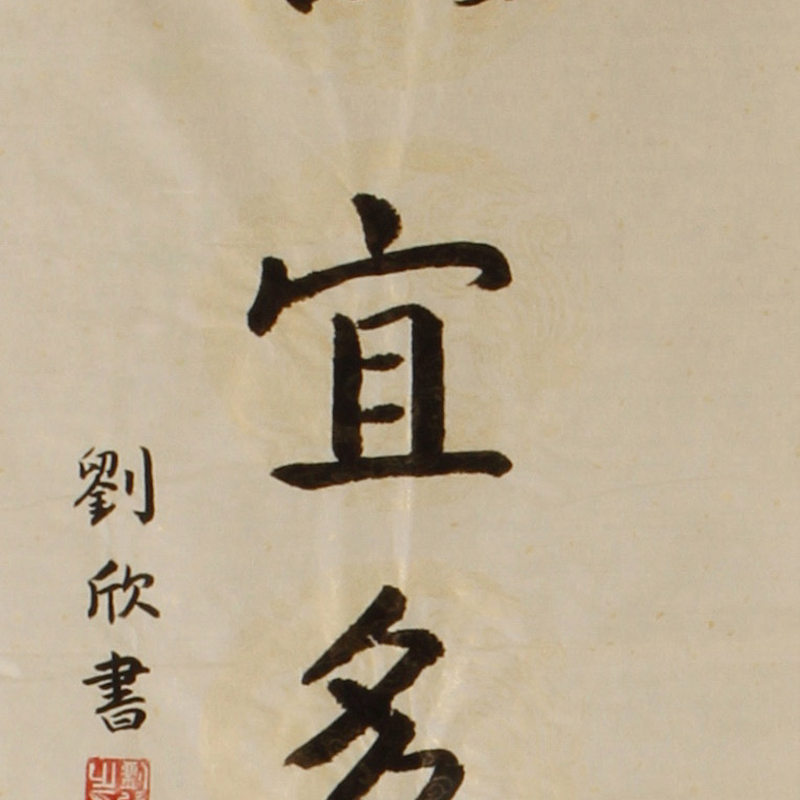 宜多
劉欣書